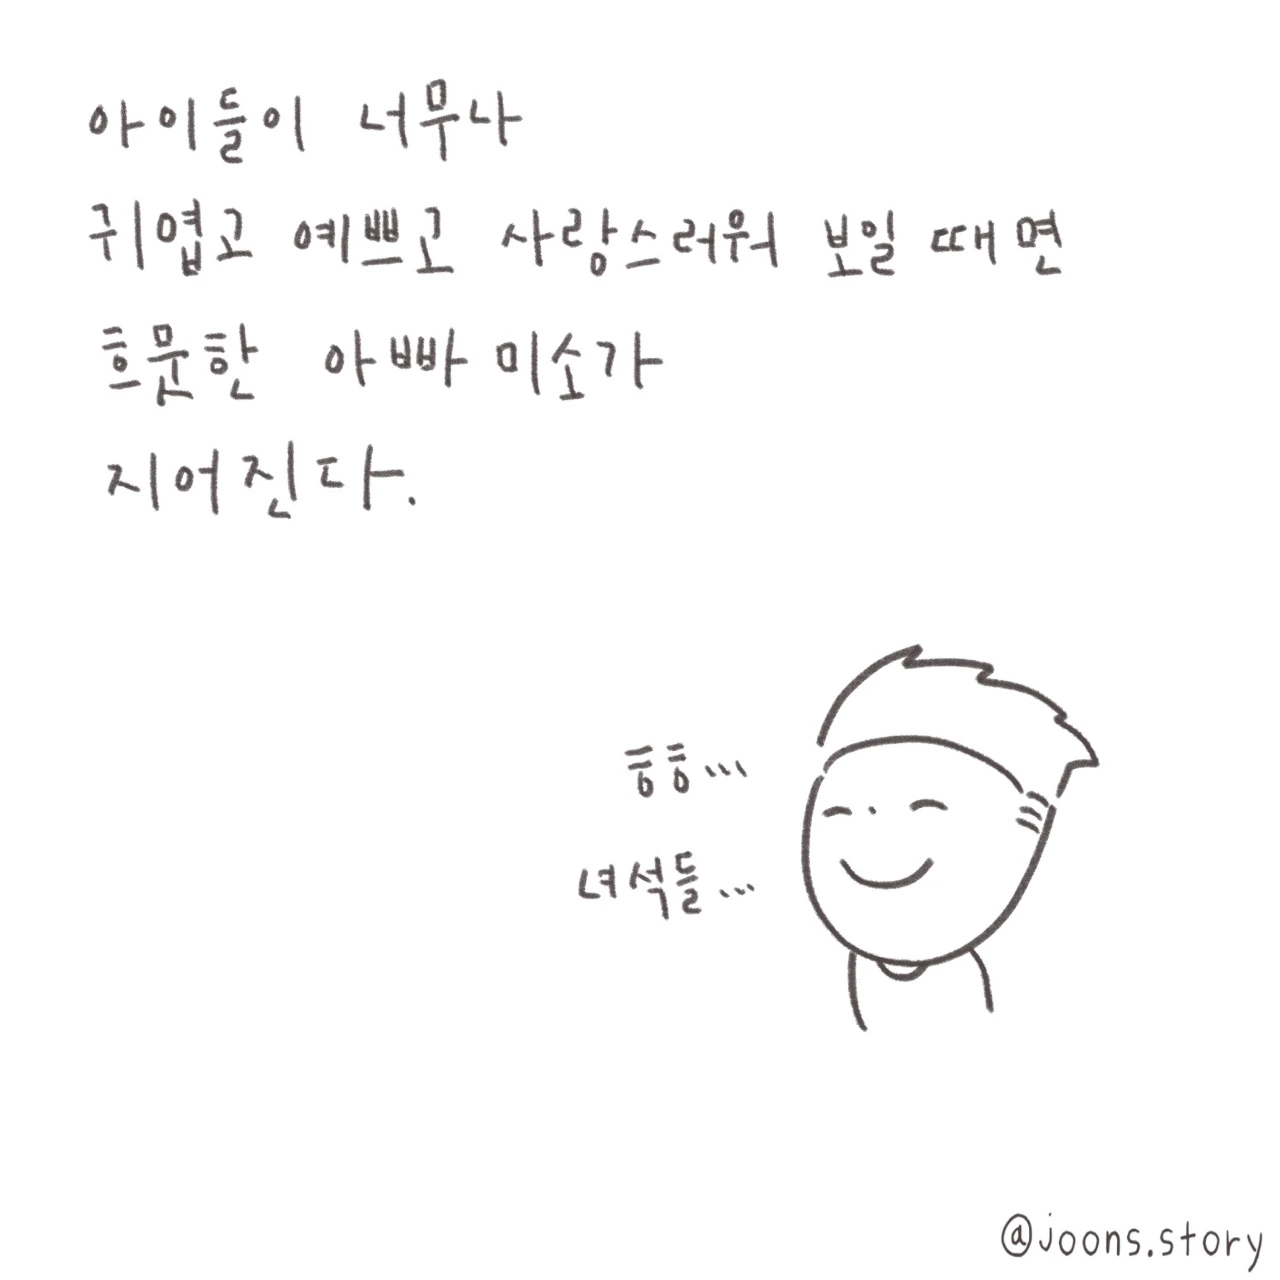 아이들이 너무나
귀엽고 예쁘고 사랑스러워 보일 때면
흐뭇한 아빠 미소가
지어진다.
흥흥...
녀석들...
@joons.story